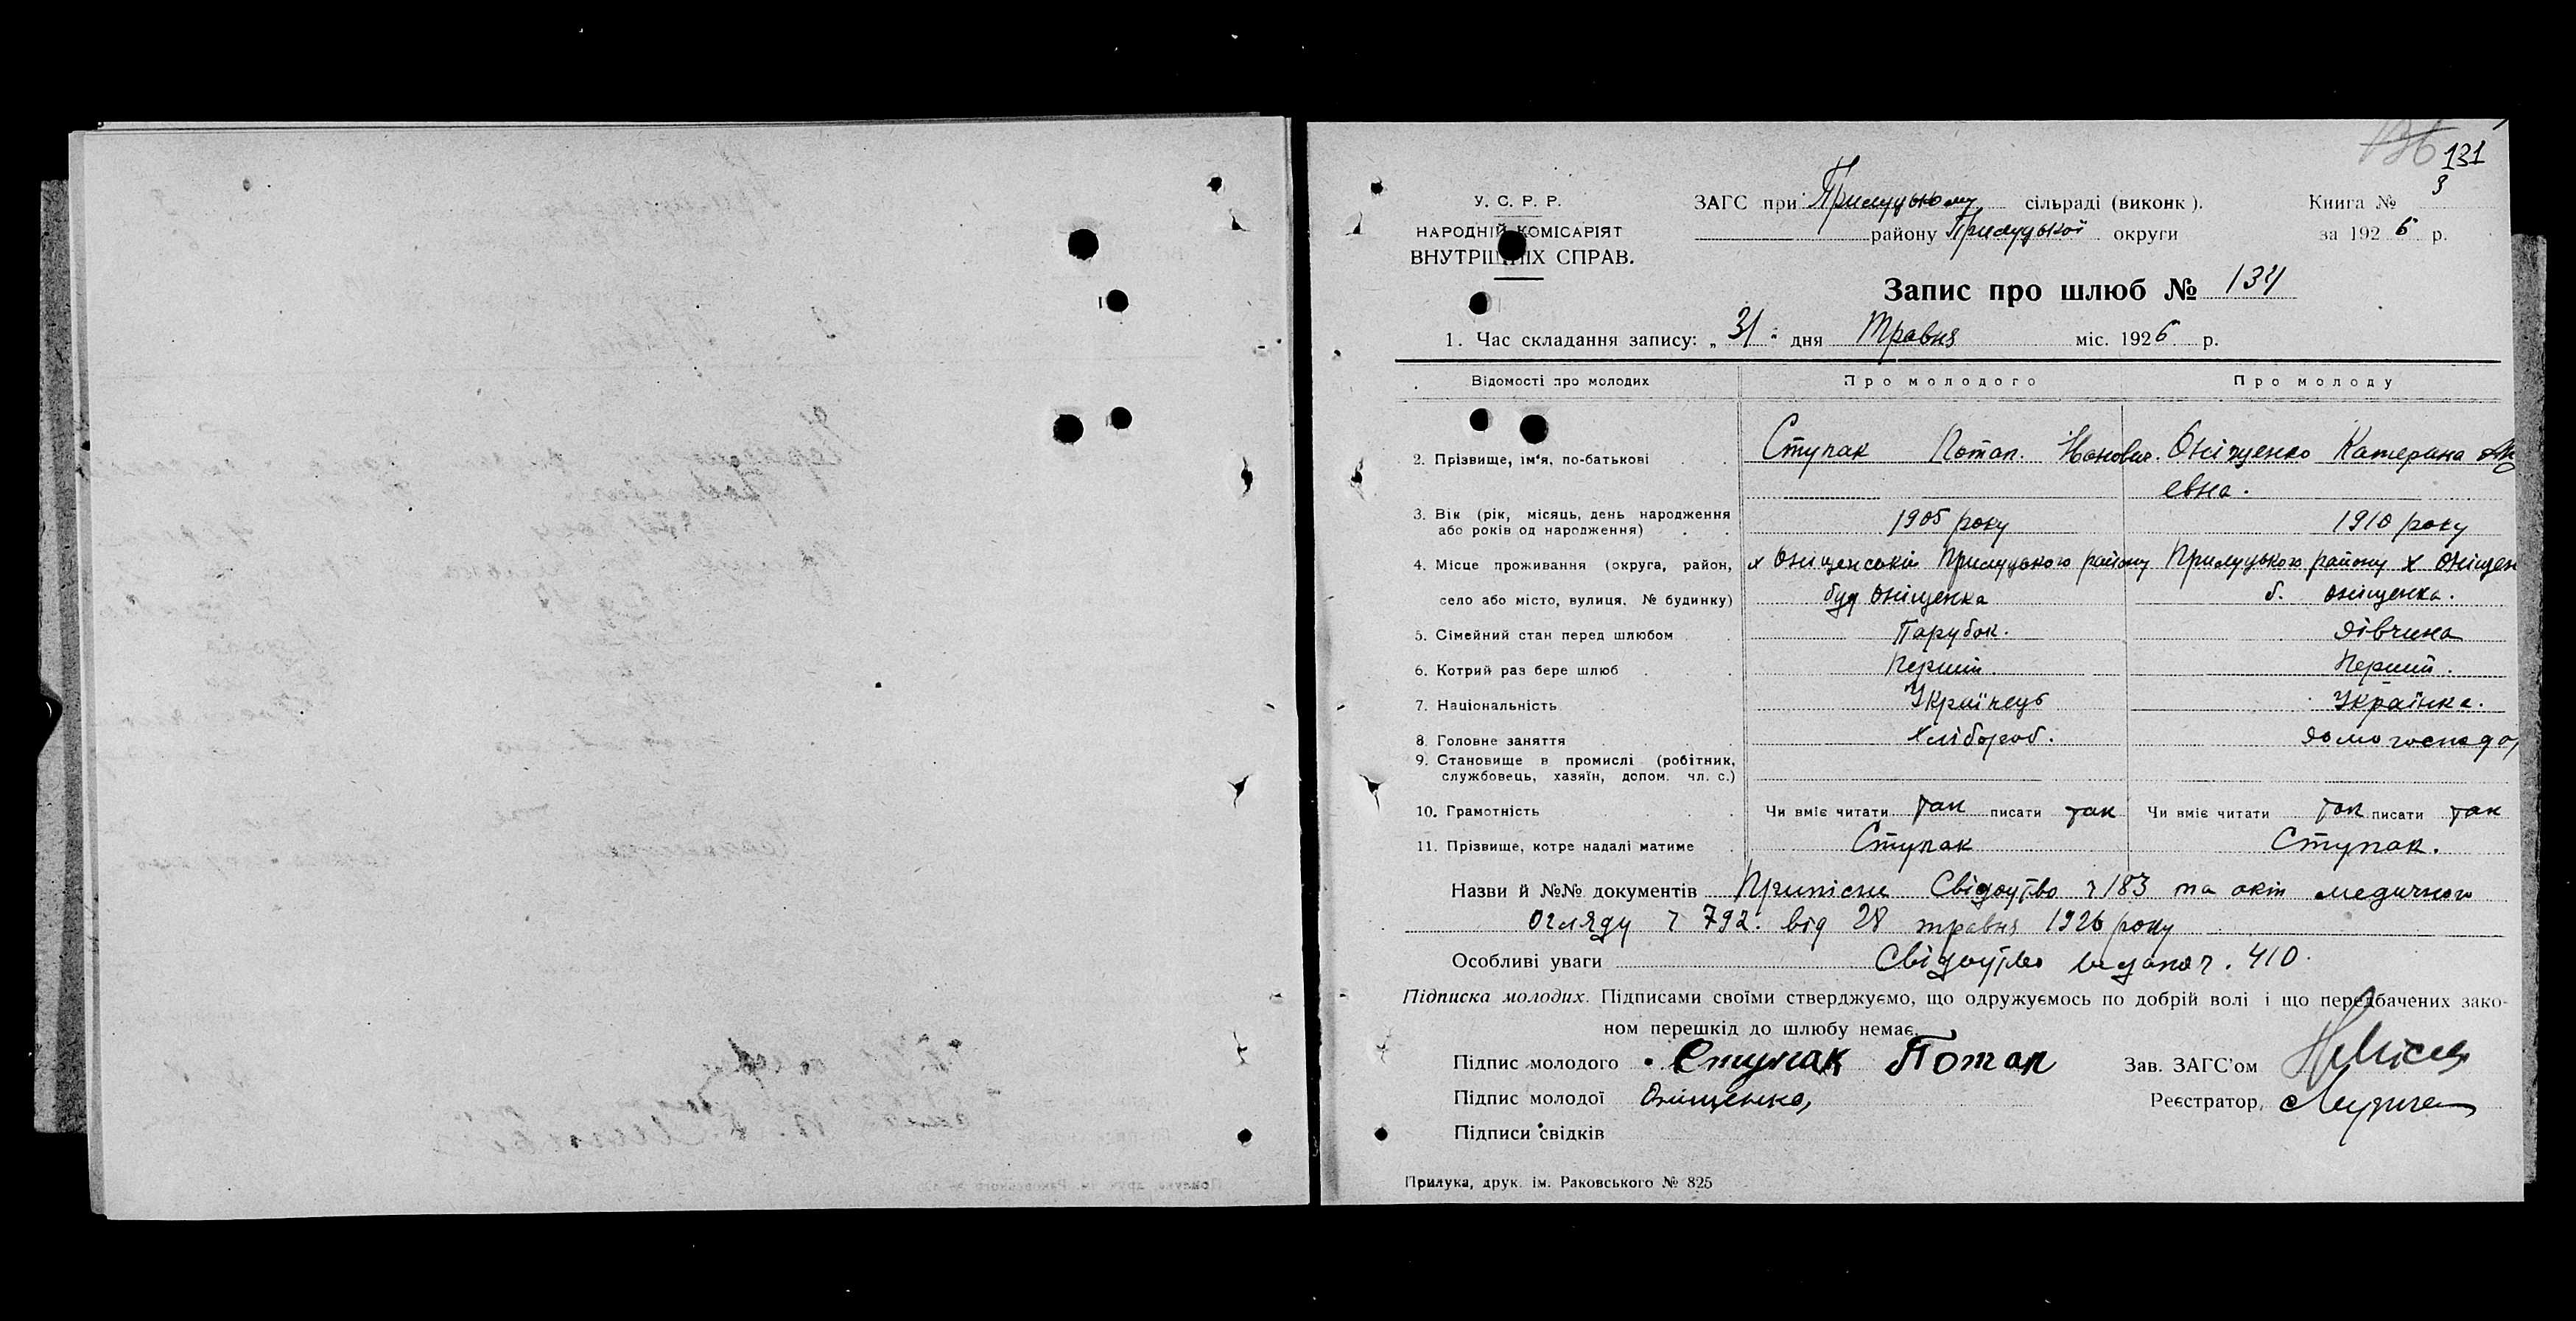 136 131
У. С. Р. Р. ЗАГС при Прилуцькому сільраді (виконк). Книга № 3
НАРОДНІЙ КОМІСАРІЯТ району Прилуцької округи за 1926 р.
ВНУТРІШНІХ СПРАВ.
Запис про шлюб № 134
1. Час складання запису: „31" дня Травня міс. 1926 р.
Відомості про молодих Про молодого Про молоду
2. Прізвище, ім'я, по-батькові Ступак Потап. Оніщенко Катерина
евна.
3. Вік (рік, місяць, день народження
або років од народження) 1905 року 1910 року
4. Місце проживання (округа, район, х Оніщенський Прилуцького району Прилуцького району х Оніщен
село або місто, вулиця, № будинку) буд Оніщенка б. Оніщенка.
5. Сімейний стан перед шлюбом Парубок. дівчина
6. Котрий раз бере шлюб Перший. Перший.
7. Національність Українець Українка.
8. Головне заняття Хлібороб. домогоспода
9. Становище в промислі (робітник,
службовець, хазяїн, допом. чл. с.)
10. Грамотність Чи вміє читати так писати так Чи вміє читати так писати так
11. Прізвище, котре надалі матиме Ступак Ступак.
Назви й №№ документів Приписне Свідоцтво ч 183 та акт медичного
огляду ч 792. від 28 травня 1926 року
Особливі уваги Свідоцтво видано ч. 410.
Підписка молодих. Підписами своїми стверджуємо, що одружуємось по добрій волі і що передбачених зако-
ном перешкід до шлюбу немає.
Підпис молодого Ступак Потап Зав. ЗАГС'ом
Підпис молодої Оніщенко, Реєстратор,
Підписи свідків
Прилука, друк. ім. Раковського № 825